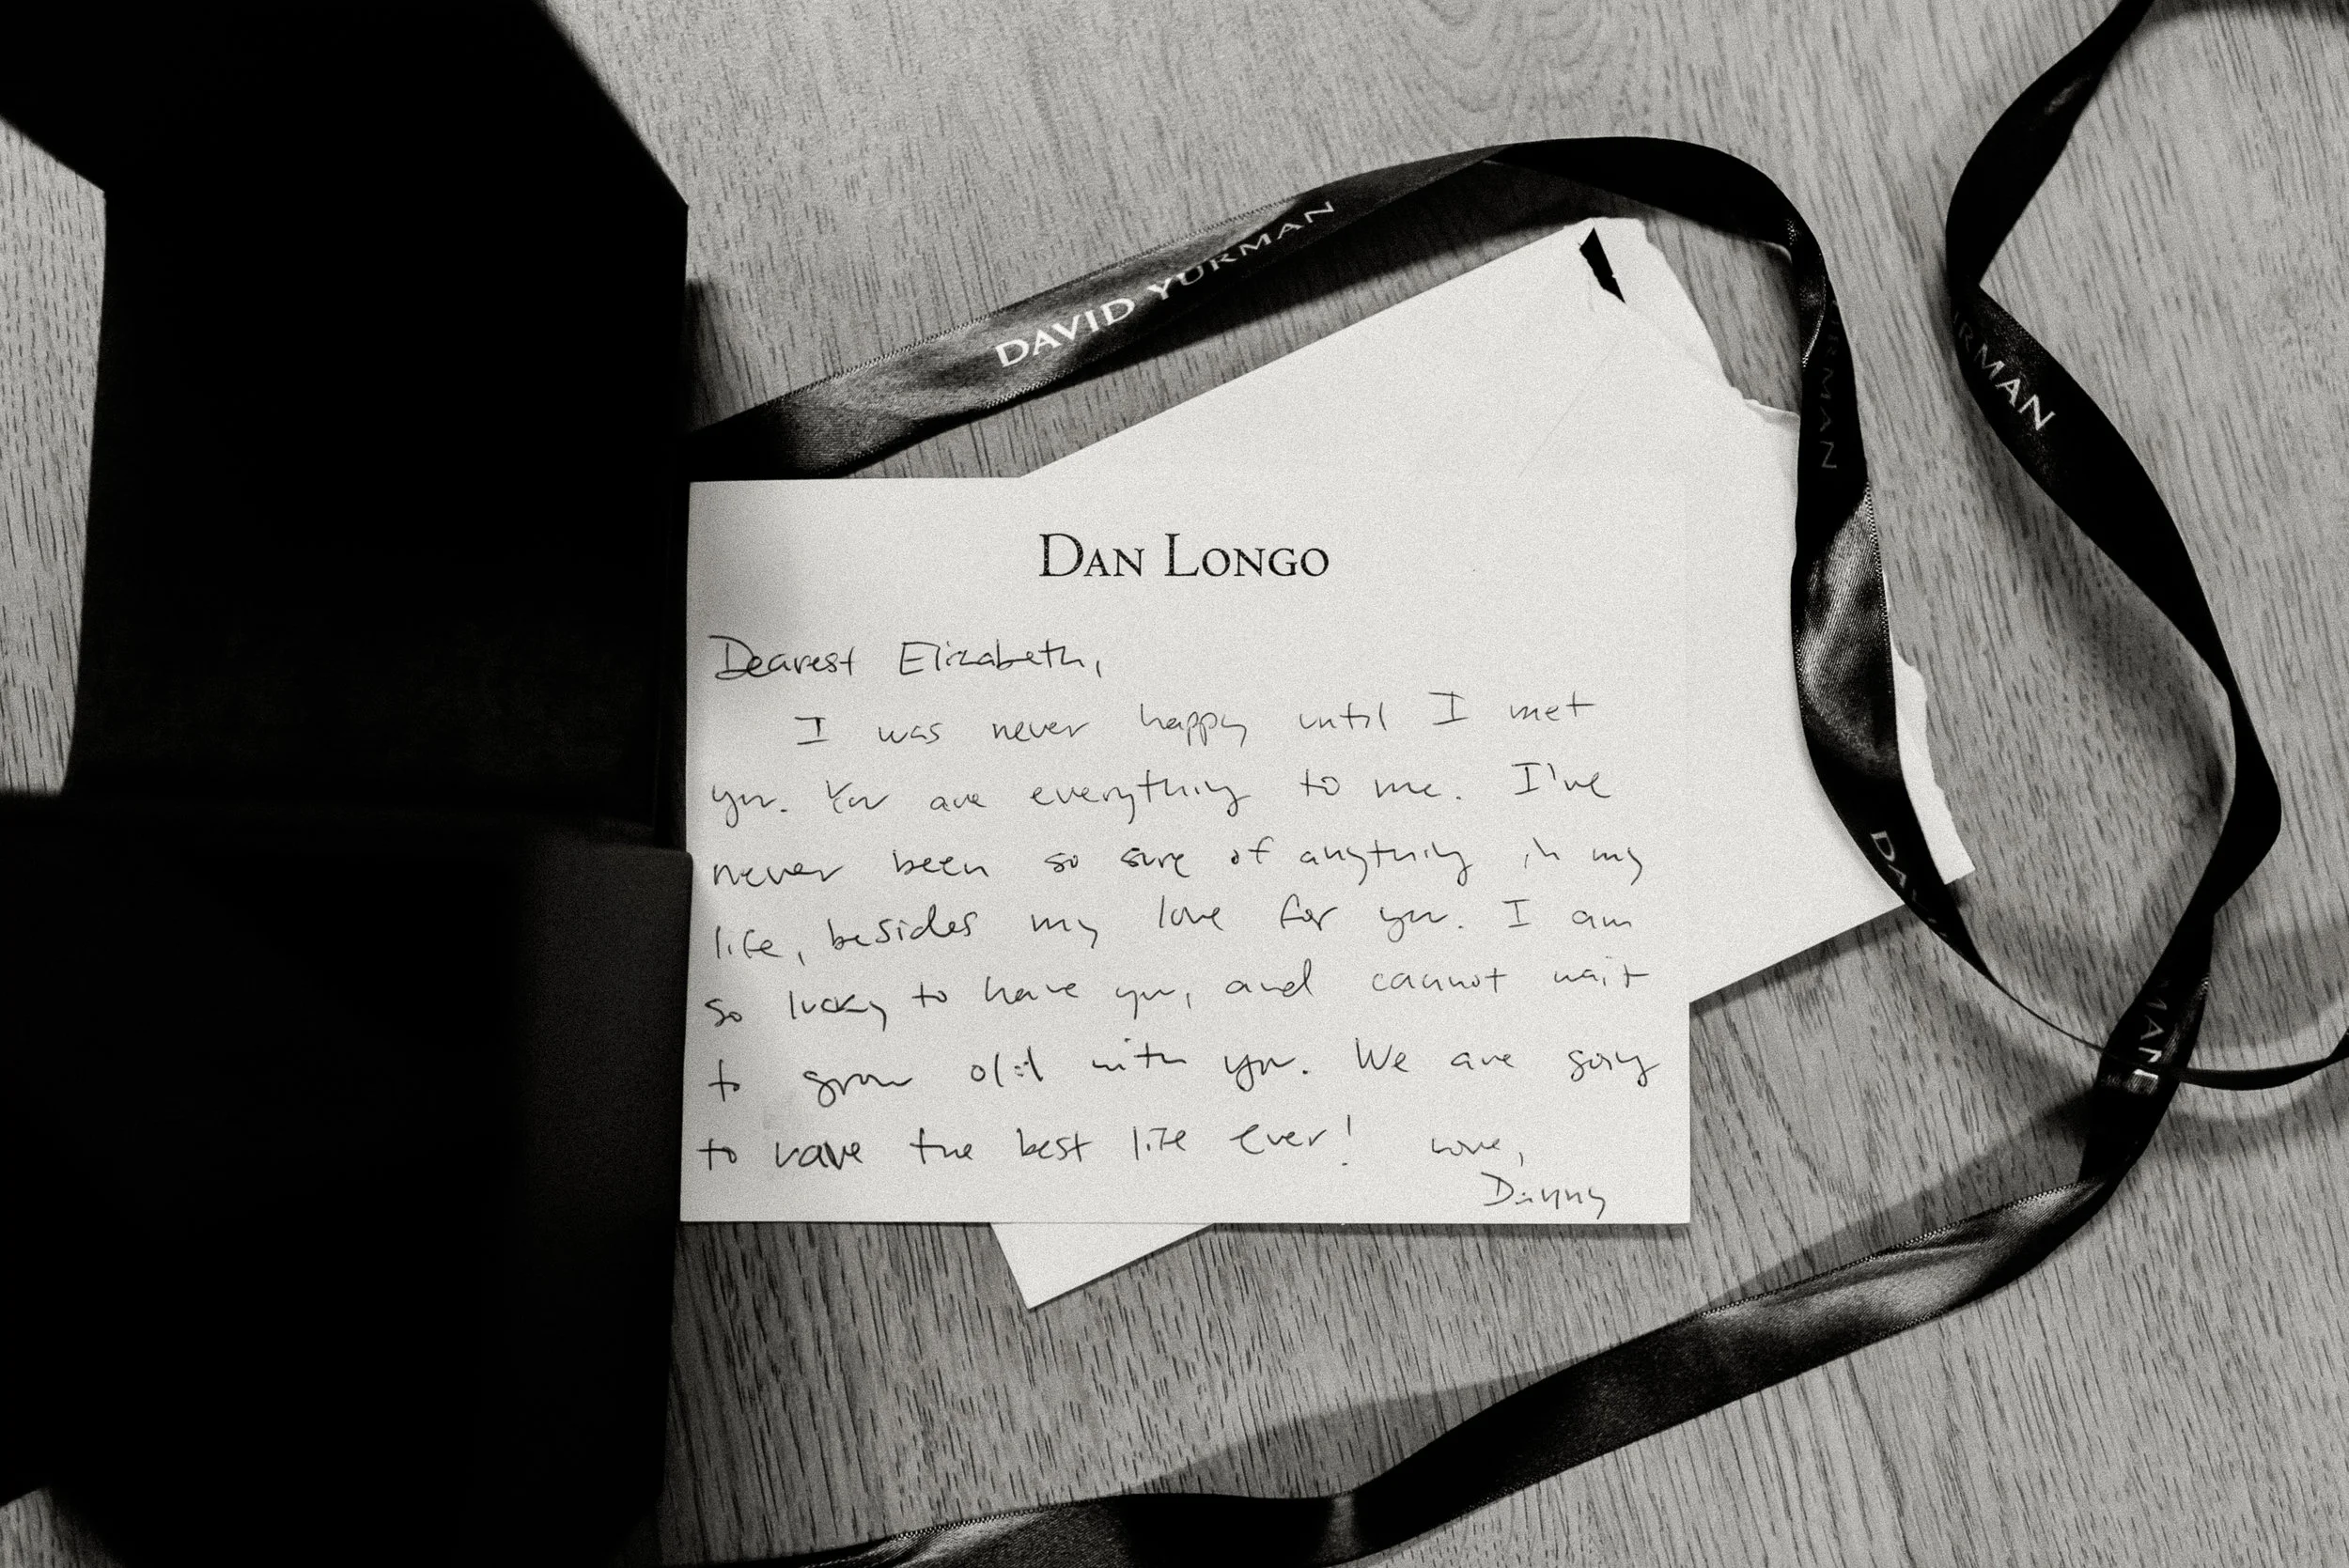 DAVID YURMAN
URMAN
URMAN
DAV
MAN
DAN LONGO
Dearest Elizabeth,
I was never happy until I met
you. You are everything to me. I've
never been so sure of anything in my
life, besides my love for you. I am
so lucky to have you, and cannot wait
to grow old with you. We are going
to have the best life ever! Love,
Danny